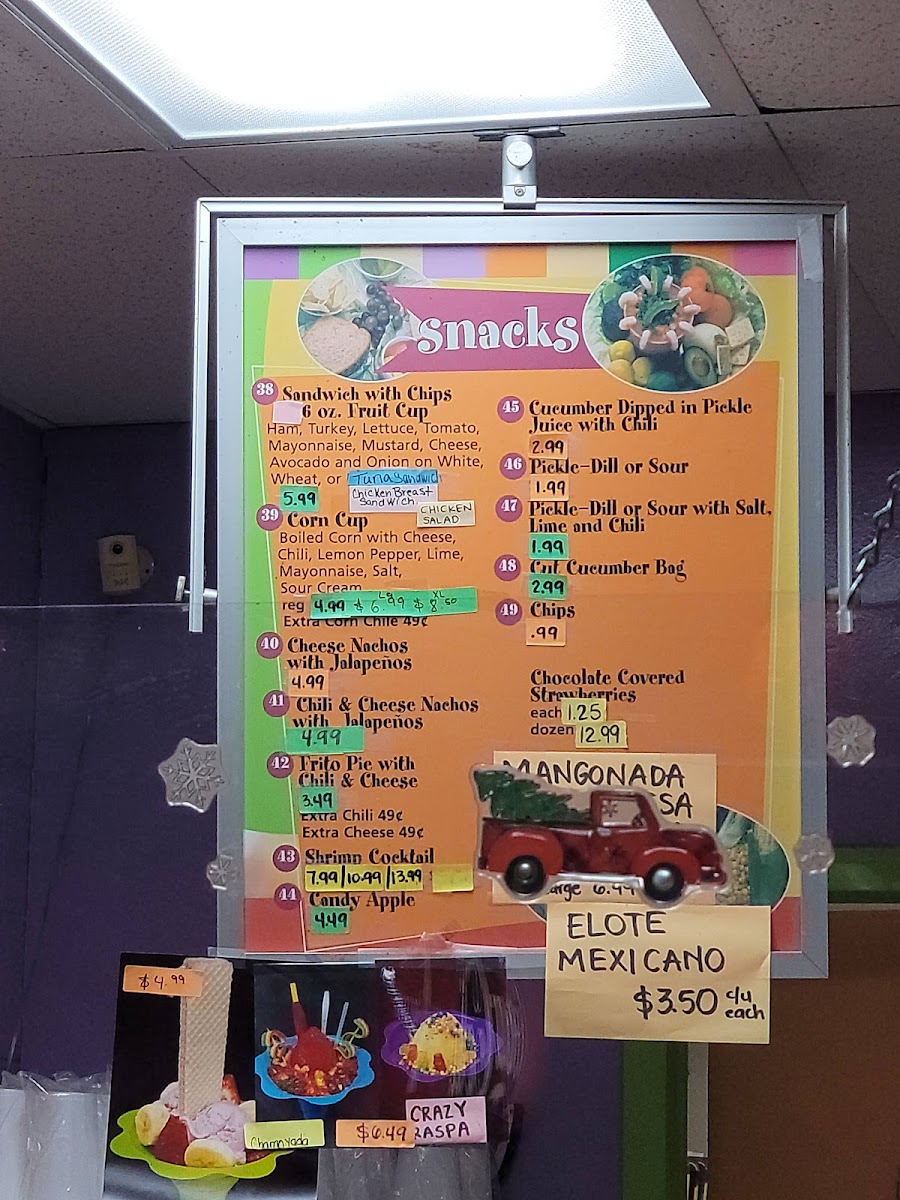 snacks
38 Sandwich with Chips
6 oz. Fruit Cup
Ham, Turkey, Lettuce, Tomato,
Mayonnaise, Mustard, Cheese,
Avocado and Onion on White,
Wheat, or
Tuna Sandwich
Chicken Breast
Sandwich.
5.99
CHICKEN
SALAD
39 Corn Cup
Boiled Corn with Cheese,
Chili, Lemon Pepper, Lime,
Mayonnaise, Salt,
Sour Cream
reg 4.99 Lg $6.99 XL $8.50
Extra Corn Chile 49¢
40 Cheese Nachos
with Jalapeños
4.99
41 Chili & Cheese Nachos
with Jalapeños
4.99
42 Frito Pie with
Chili & Cheese
3.49
Extra Chili 49¢
Extra Cheese 49¢
43 Shrimp Cocktail
7.99/10.99/13.99
44 Candy Apple
4.49
45 Cucumber Dipped in Pickle
Juice with Chili
2.99
46 Pickle-Dill or Sour
1.99
47 Pickle-Dill or Sour with Salt,
Lime and Chili
1.99
48 Cut Cucumber Bag
2.99
49 Chips
.99
Chocolate Covered
Strawberries
each 1.25
dozen 12.99
MANGONADA
arge 6.99
ELOTE
MEXICANO
$3.50 c/u
each
$4.99
Chamoyada
$6.49
CRAZY
RASPA